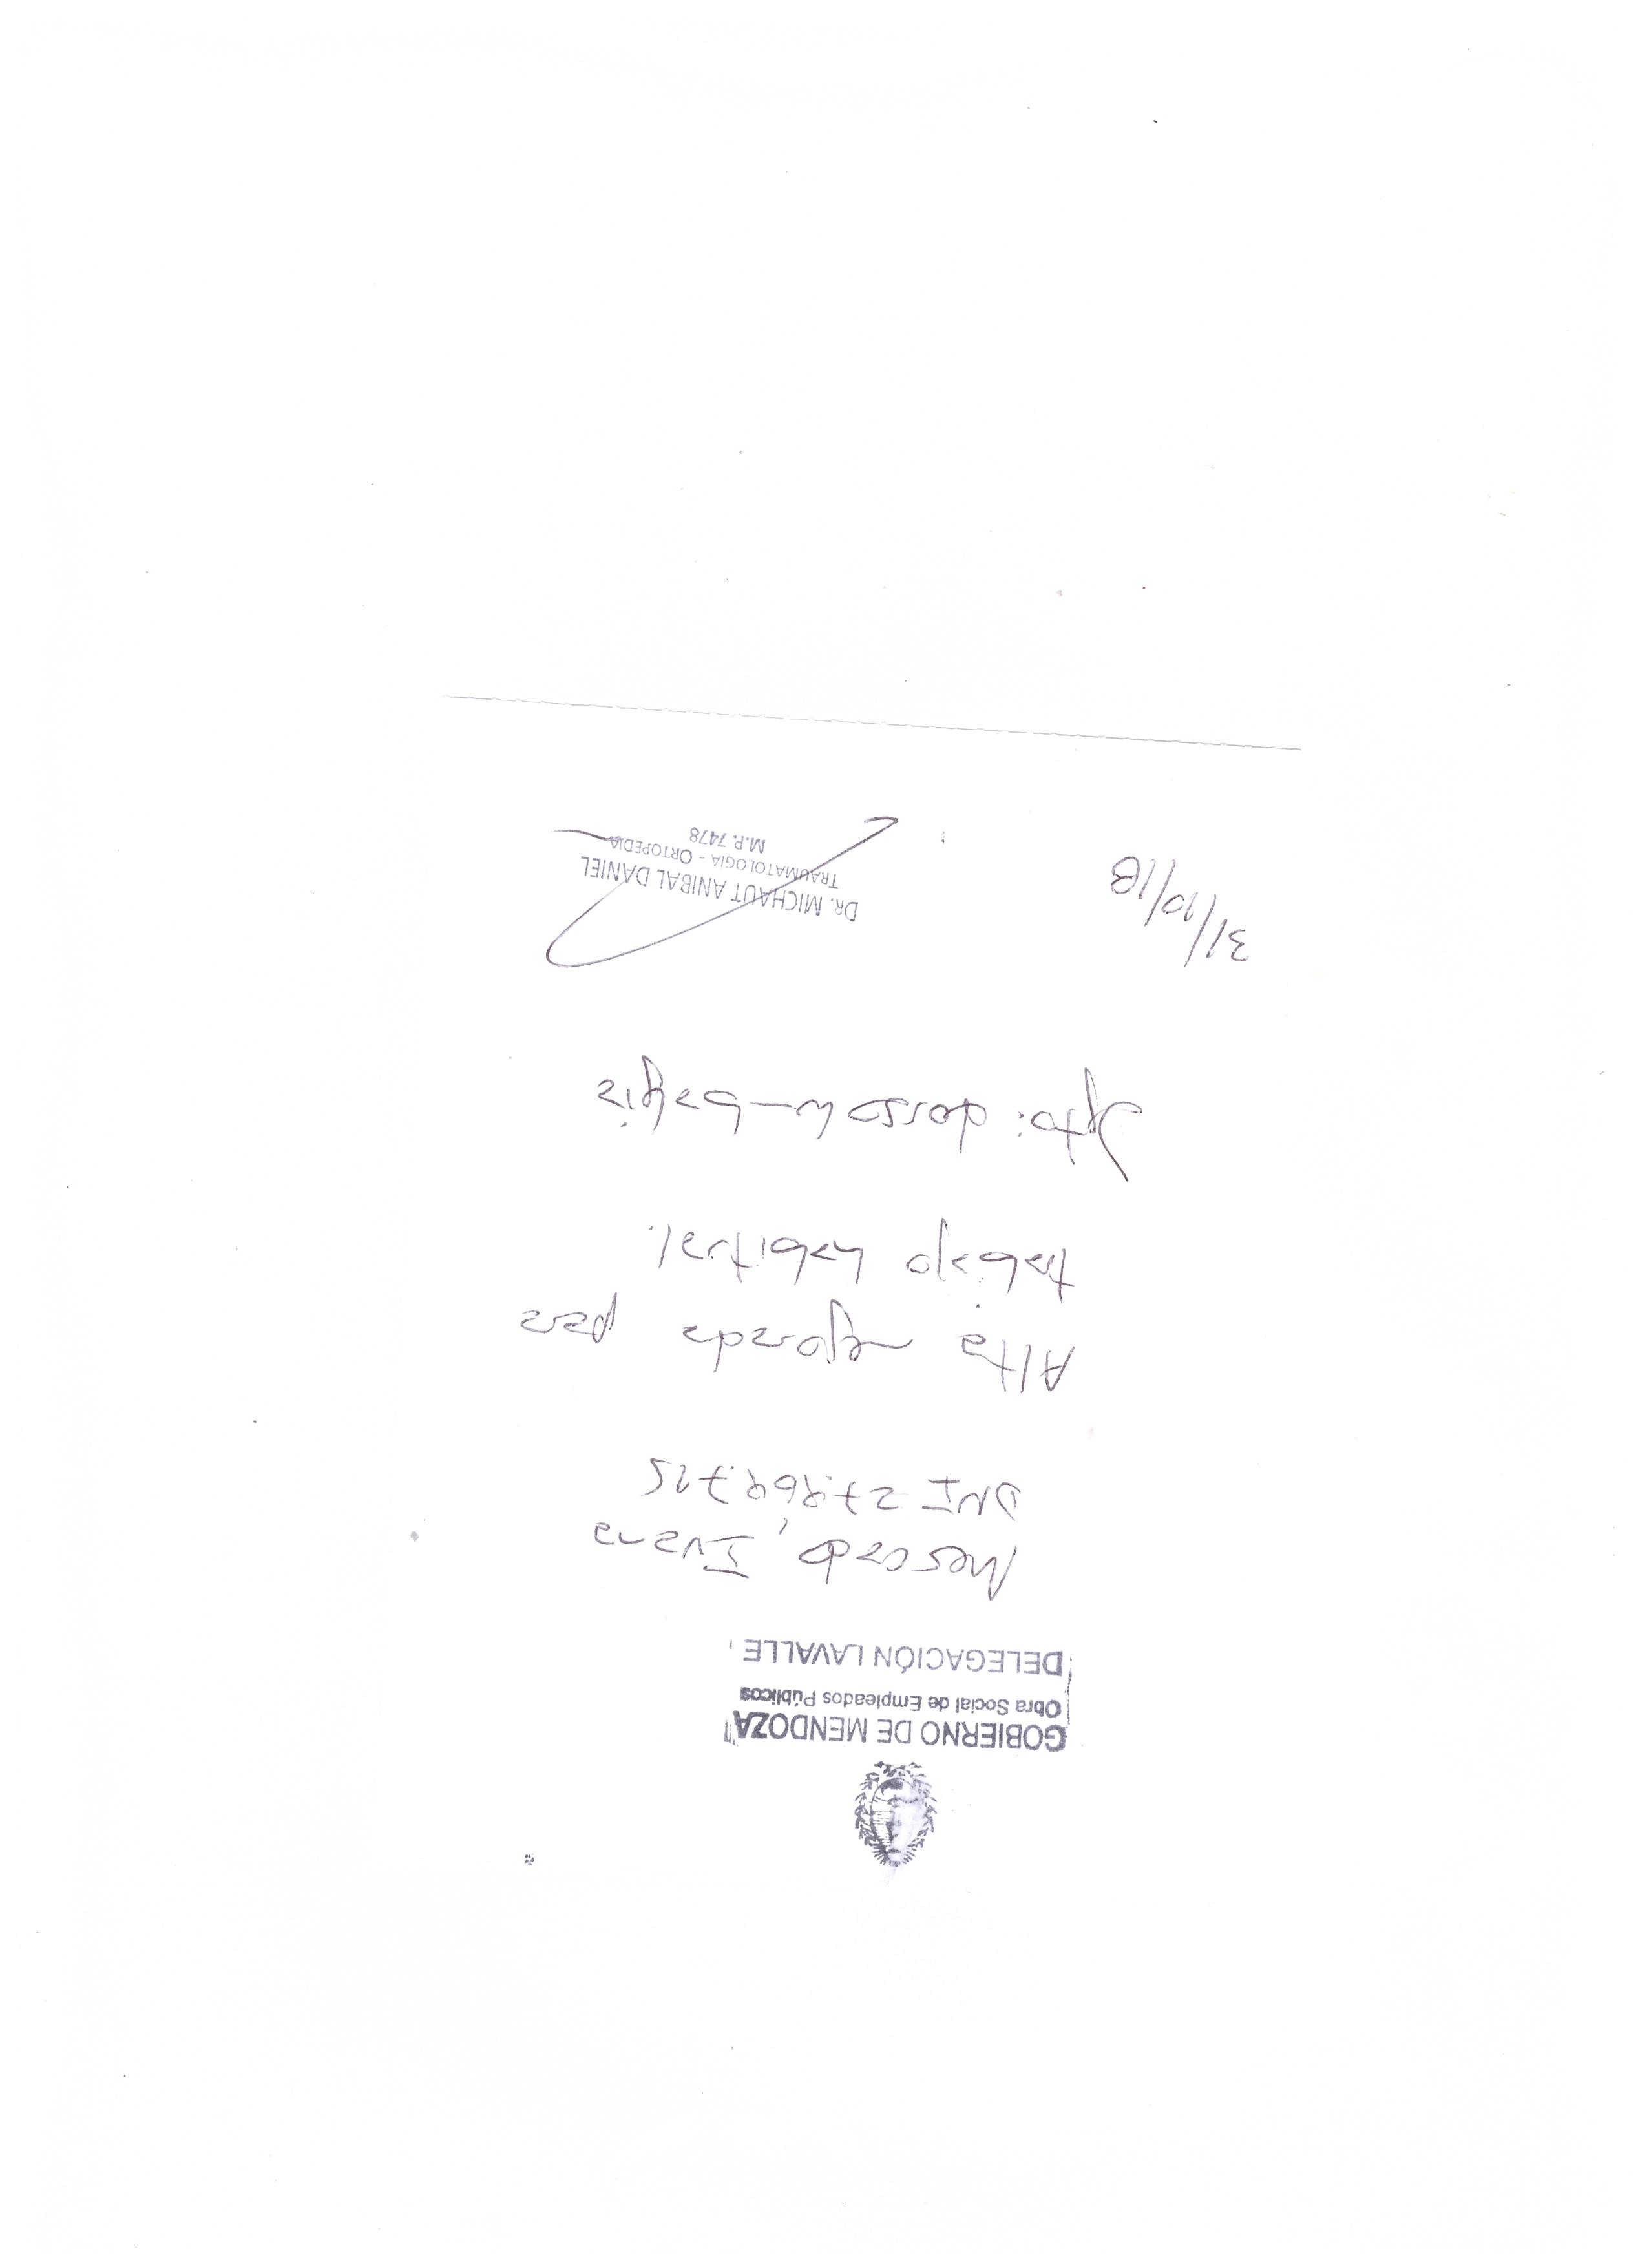 GOBIERNO DE MENDOZA
Obra Social de Empleados Públicos
DELEGACIÓN LAVALLE
Mercado, Ivana
DNI
Alta para
trabajo habitual.
31/10/18
DR. MICHAUT ANIBAL DANIEL
TRAUMATOLOGIA - ORTOPEDIA
M.P. 7478